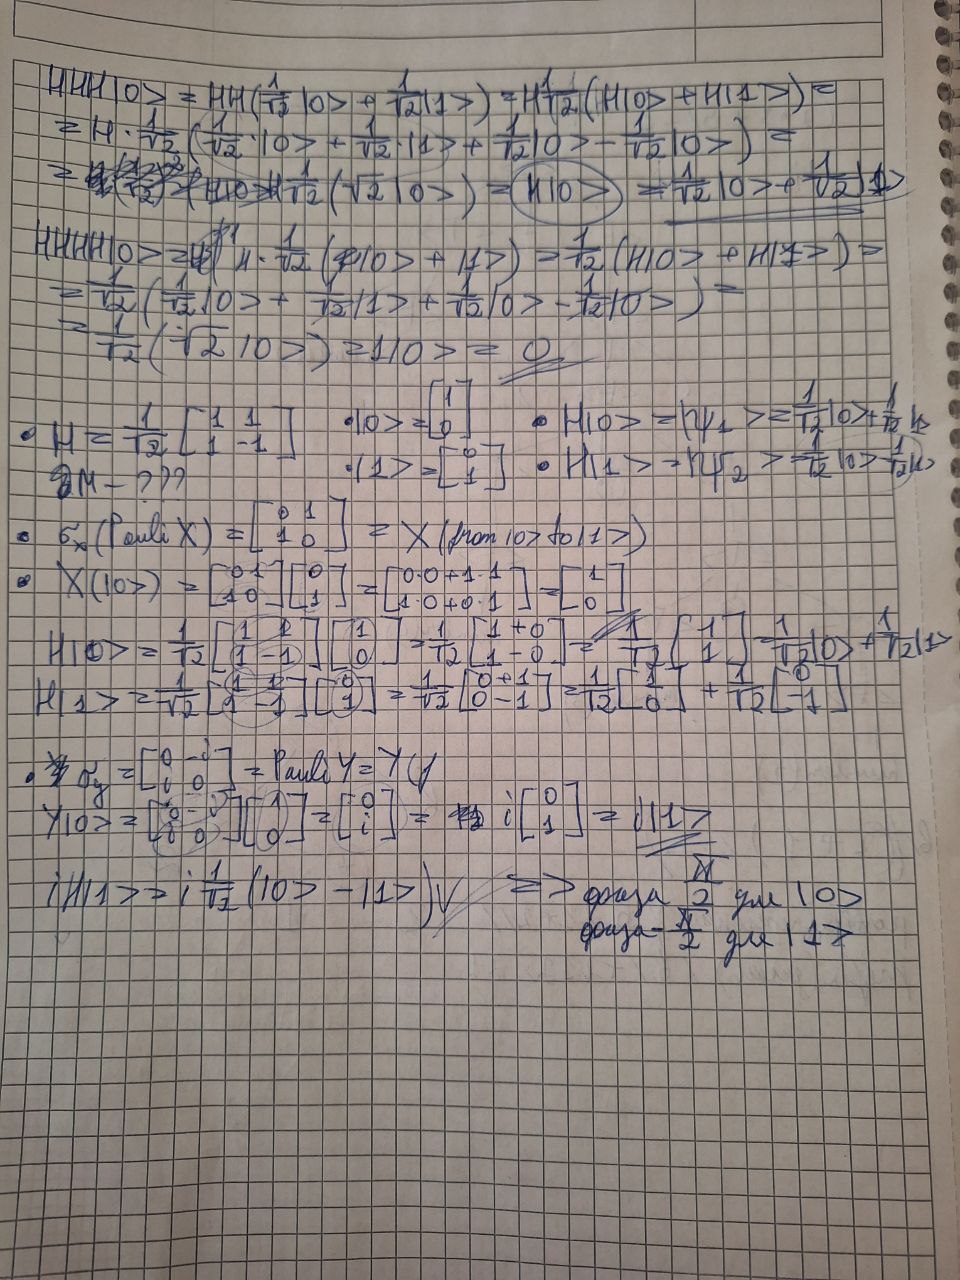 HHH|0> = HH(1/√2 |0> + 1/√2 |1>) = H 1/√2 (H|0> + H|1>) =
= H · 1/√2 (1/√2 · |0> + 1/√2 · |1> + 1/√2 |0> - 1/√2 |0>) =
= H 1/√2 (√2 |0>) = H|0> = 1/√2 |0> + 1/√2 |1>
HHHH|0> = H · 1/√2 (|0> + |1>) = 1/√2 (H|0> + H|1>) =
= 1/√2 (1/√2 |0> + 1/√2 |1> + 1/√2 |0> - 1/√2 |0>) =
= 1/√2 (√2 |0>) = 1|0> = 0
• H = 1/√2 [1 1; 1 -1] • |0> = [1; 0] • H|0> = |ψ1> = 1/√2 |0> + 1/√2 |1>
ЭМ - ??? • |1> = [0; 1] • H|1> = |ψ2> = 1/√2 |0> - 1/√2 |1>
• σx (Pauli X) = [0 1; 1 0] = X (from |0> to |1>)
• X(|0>) = [0 1; 1 0] [0; 1] = [0·0+1·1; 1·0+0·1] = [1; 0]
H|0> = 1/√2 [1 1; 1 -1] [1; 0] = 1/√2 [1+0; 1-0] = 1/√2 [1; 1] = 1/√2 |0> + 1/√2 |1>
H|1> = 1/√2 [1 1; 1 -1] [0; 1] = 1/√2 [0+1; 0-1] = 1/√2 [1; 0] + 1/√2 [0; -1]
• σy = [0 -i; i 0] = Pauli Y = Y
Y|0> = [0 -i; i 0] [1; 0] = [0; i] = i [0; 1] = i|1>
iH|1> = i 1/√2 (|0> - |1>) => фаза π/2 для |0>
фаза - π/2 для |1>